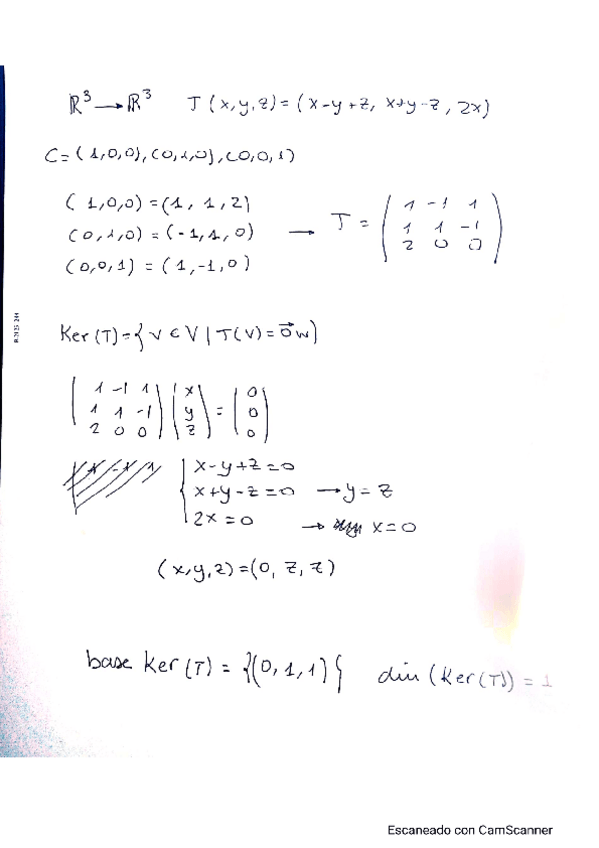 ℝ³ → ℝ³   T(x,y,z)=(x-y+z, x+y-z, 2x)
C=(1,0,0),(0,1,0),(0,0,1)
(1,0,0)=(1, 1, 2)
(0,1,0)=(-1,1,0) → T = ( 1 -1 1
1 1 -1
2 0 0 )
(0,0,1)=(1,-1,0)
Ker(T)={v∈V | T(v)=0⃗w}
( 1 -1 1 ) ( x ) = ( 0 )
( 1 1 -1 ) ( y ) ( 0 )
( 2 0 0 ) ( z ) ( 0 )
x-y+z=0
x+y-z=0 → y=z
2x=0 → x=0
(x,y,z)=(0, z, z)
base Ker(T) = {(0,1,1)}   dim(Ker(T)) = 1
Escaneado con CamScanner